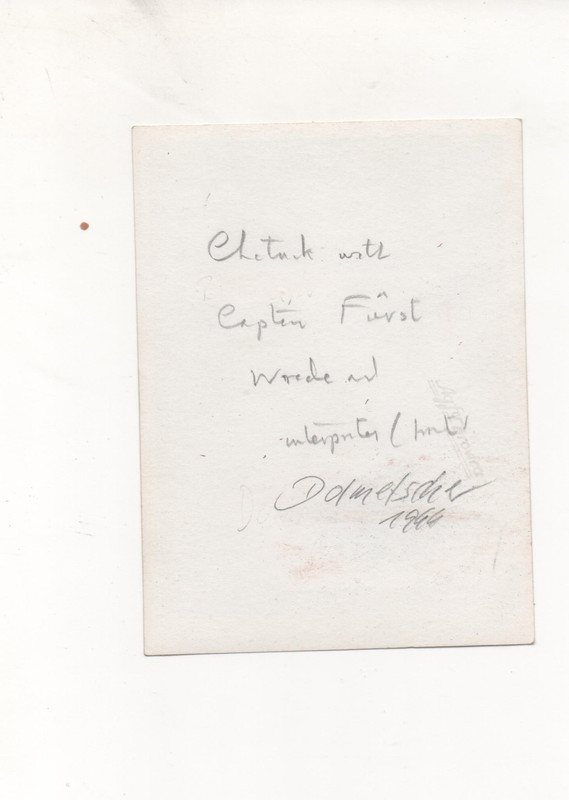 Chetnik with
Captain Fürst
Wrede and
interpreter (front)
Dolmetscher
1944